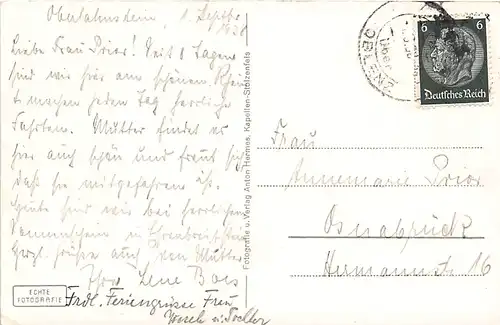 Oberlahnstein, 1. Septbr. 1938
Liebe Frau Prior! Seit 8 Tagen
sind wir hier am schönen Rhein
u. machen jeden Tag herrliche
Fahrten. Mutter findet es
hier auch schön und freut sich
daß sie mitgefahren ist.
Heute sind wir bei herrlichem
Sonnenschein in Ehrenbreitstein
Herzl. Grüße auch von Mutter
Ihre Lene
Frdl. Feriengrüsse Frau
u. Tochter
ECHTE
FOTOGRAFIE
Fotografie u. Verlag Anton Hermes, Kapellen-Stolzenfels
über
OBLENZ
6 6
Deutsches Reich
Frau
Annemarie Prior
Osnabrück
Hermannst. 16